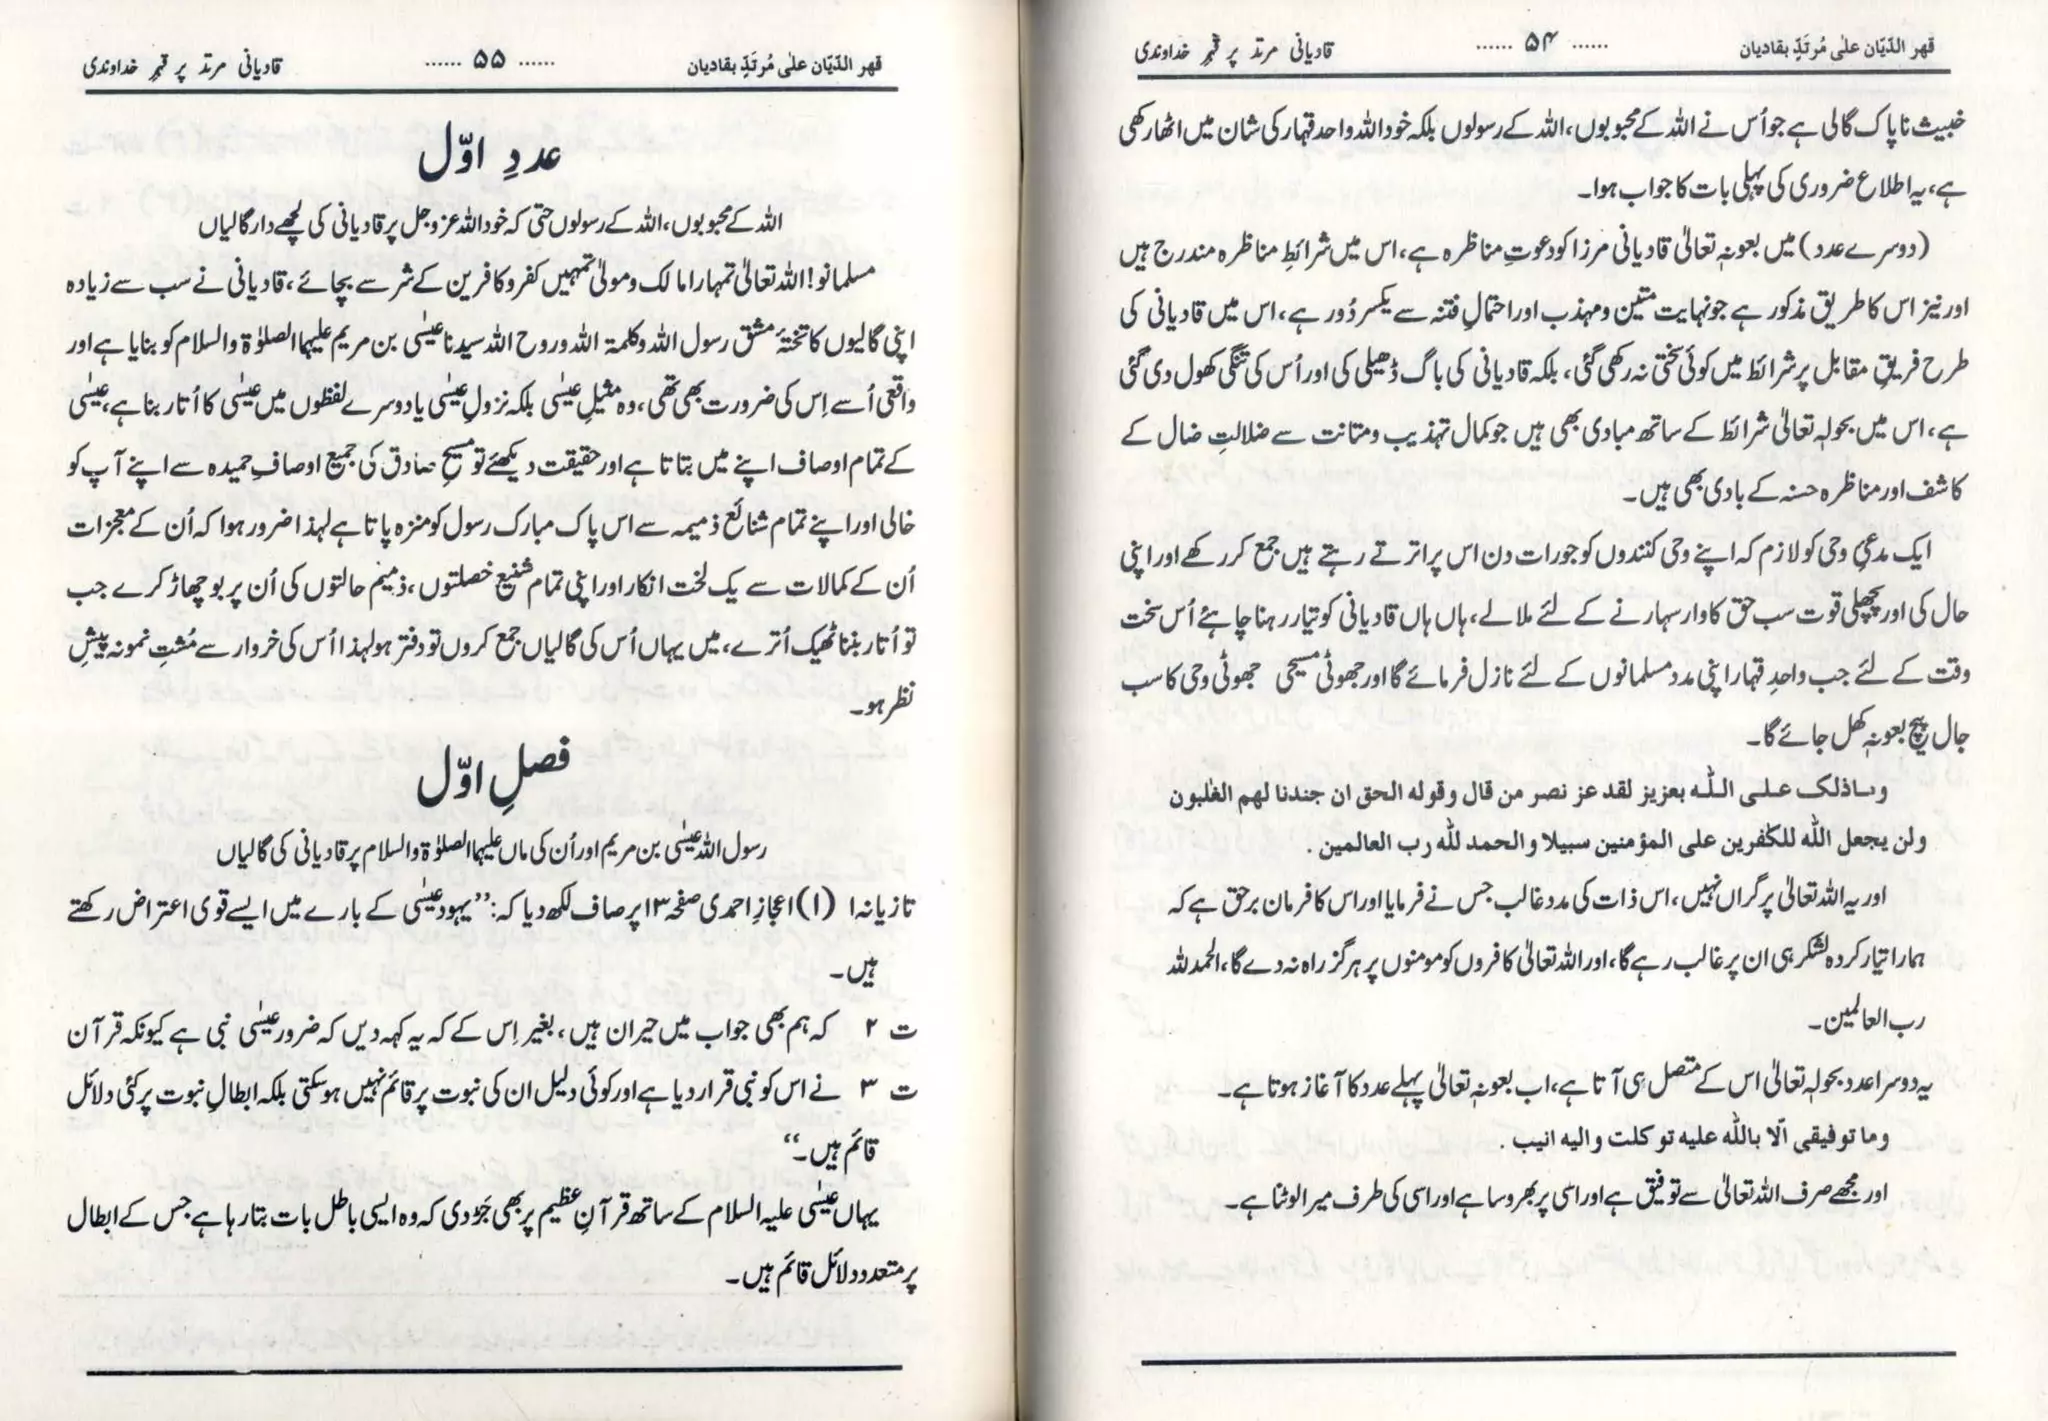 قهر الدّیّان علیٰ مُرتَدٍّ بقادیان ...... ۵۴ ...... قادیانی مرتد پر قہرِ خداوندی
خبیث ناپاک گالی ہے جو اُس نے اللہ کے محبوبوں، اللہ کے رسولوں بلکہ خود اللہ واحد قہار کی شان میں اٹھا رکھی
ہے، یہ اطلاع ضروری کی پہلی بات کا جواب ہوا۔
(دوسرے عدد) میں بعونہٖ تعالیٰ قادیانی مرزا کو دعوتِ مناظرہ ہے، اس میں شرائطِ مناظرہ مندرج ہیں
اور نیز اس کا طریق مذکور ہے جو نہایت متین و مہذب اور احتمالِ فتنہ سے یکسر دُور ہے، اس میں قادیانی کی
طرح فریقِ مقابل پر شرائط میں کوئی سختی نہ رکھی گئی، بلکہ قادیانی کی باگ ڈھیلی کی اور اُس کی تنگی کھول دی گئی
ہے، اس میں بحولہٖ تعالیٰ شرائط کے ساتھ مبادی بھی ہیں جو کمال تہذیب و متانت سے ضلالتِ ضال کے
کاشف اور مناظرہ حسنہ کے بادی بھی ہیں۔
ایک مدعیِ وحی کو لازم کہ اپنے وحی کنندوں کو جو رات دن اس پر اترتے رہتے ہیں جمع کر رکھے اور اپنی
حال کی اور پچھلی قوت سب حق کا وار سہارنے کے لئے ملالے، ہاں ہاں قادیانی کو تیار رہنا چاہئے اُس سخت
وقت کے لئے جب واحدِ قہار اپنی مدد مسلمانوں کے لئے نازل فرمائے گا اور جھوٹی مسیحی جھوٹی وحی کا سب
جال پیچ بعونہٖ کھل جائے گا۔
وماذلک علی اللّٰہ بعزیز لقد عز نصر من قال وقولہ الحق ان جندنا لھم الغلبون
ولن یجعل اللّٰہ للکٰفرین علی المؤمنین سبیلا والحمد للّٰہ رب العالمین .
اور یہ اللہ تعالیٰ پر گراں نہیں، اس ذات کی مدد غالب جس نے فرمایا اور اس کا فرمان برحق ہے کہ
ہمارا تیار کردہ لشکر ہی ان پر غالب رہے گا، اور اللہ تعالیٰ کافروں کو مومنوں پر ہرگز راہ نہ دے گا، الحمد للہ
رب العالمین۔
یہ دوسرا عدد بحولہٖ تعالیٰ اس کے متصل ہی آتا ہے، اب بعونہٖ تعالیٰ پہلے عدد کا آغاز ہوتا ہے۔
وما توفیقی الّا باللّٰہ علیہ توکلت والیہ انیب .
اور مجھے صرف اللہ تعالیٰ سے توفیق ہے اور اسی پر بھروسا ہے اور اسی کی طرف میرا لوٹنا ہے۔
قهر الدّیّان علیٰ مُرتَدٍّ بقادیان ...... ۵۵ ...... قادیانی مرتد پر قہرِ خداوندی
عددِ اوّل
اللہ کے محبوبوں، اللہ کے رسولوں حتی کہ خود اللہ عزوجل پر قادیانی کی لچھے دار گالیاں
مسلمانو! اللہ تعالیٰ تمہارا مالک و مولیٰ تمہیں کفر و کافرین کے شر سے بچائے، قادیانی نے سب سے زیادہ
اپنی گالیوں کا تختۂ مشق رسول اللہ و کلمۃ اللہ و روح اللہ سیدنا عیسٰی بن مریم علیہما الصلوٰۃ والسلام کو بنایا ہے اور
واقعی اُسے اِس کی ضرورت بھی تھی، وہ مثیلِ عیسٰی بلکہ نزولِ عیسٰی یا دوسرے لفظوں میں عیسٰی کا اُتار بنا ہے، عیسٰی
کے تمام اوصاف اپنے میں بتاتا ہے اور حقیقت دیکھئے تو مسیحِ صادق کی جمیع اوصافِ حمیدہ سے اپنے آپ کو
خالی اور اپنے تمام شنائع ذمیمہ سے اس پاک مبارک رسول کو منزہ پاتا ہے لہذا ضرور ہوا کہ اُن کے معجزات
اُن کے کمالات سے یک لخت انکار اور اپنی تمام شنیع خصلتوں، ذمیم حالتوں کی اُن پر بوچھاڑ کرے جب
تو اُتار بننا ٹھیک اُترے، میں یہاں اُس کی گالیاں جمع کروں تو دفتر ہو لہذا اُس کی خروار سے مُشتِ نمونہ پیشِ
نظر ہو۔
فصلِ اوّل
رسول اللہ عیسٰی بن مریم اور اُن کی ماں علیہما الصلوٰۃ والسلام پر قادیانی کی گالیاں
تازیانہ ۱ (۱) اعجازِ احمدی صفحہ ۱۳ پر صاف لکھ دیا کہ: ‘‘یہود عیسٰی کے بارے میں ایسے قوی اعتراض رکھتے
ہیں۔
ت ۲ کہ ہم بھی جواب میں حیران ہیں، بغیر اِس کے کہ یہ کہہ دیں کہ ضرور عیسٰی نبی ہے کیونکہ قرآن
ت ۳ نے اس کو نبی قرار دیا ہے اور کوئی دلیل ان کی نبوت پر قائم نہیں ہو سکتی بلکہ ابطالِ نبوت پر کئی دلائل
قائم ہیں۔’’
یہاں عیسٰی علیہ السلام کے ساتھ قرآنِ عظیم پر بھی جَڑ دی کہ وہ ایسی باطل بات بتا رہا ہے جس کے ابطال
پر متعدد دلائل قائم ہیں۔